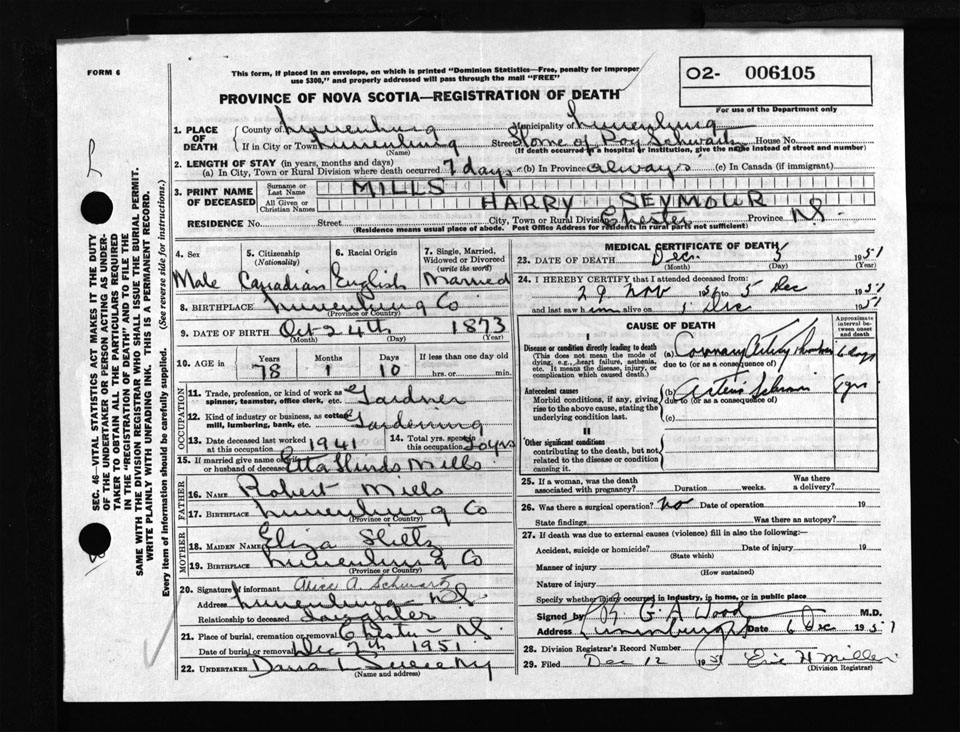 FORM 6
This form, if placed in an envelope, on which is printed "Dominion Statistics—Free, penalty for improper
use $300," and properly addressed will pass through the mail "FREE"
O2- 006105
For use of the Department only
PROVINCE OF NOVA SCOTIA—REGISTRATION OF DEATH
1. PLACE OF DEATH
County of Lunenburg Municipality of Lunenburg
If in City or Town Lunenburg Street Home of Roy Schwartz House No.
(Name) (If death occurred in a hospital or institution, give the name instead of street and number)
2. LENGTH OF STAY (in years, months and days)
(a) In City, Town or Rural Division where death occurred 7 days (b) In Province always (c) In Canada (if immigrant)
3. PRINT NAME OF DECEASED
Surname or Last Name MILLS
All Given or Christian Names HARRY SEYMOUR
RESIDENCE No. Street City, Town or Rural Division Chester Province NS.
(Residence means usual place of abode. Post Office Address for residents in rural parts not sufficient)
4. Sex 5. Citizenship (Nationality) 6. Racial Origin 7. Single, Married, Widowed or Divorced (write the word)
Male Canadian English Married
8. BIRTHPLACE Lunenburg Co
(Province or Country)
9. DATE OF BIRTH Oct 24th 1873
(Month) (Day) (Year)
10. AGE in Years Months Days If less than one day old
78 1 10 hrs. or min.
OCCUPATION
11. Trade, profession, or kind of work as spinner, teamster, office clerk, etc. Gardner
12. Kind of industry or business, as cotton mill, lumbering, bank, etc. Gardening
13. Date deceased last worked at this occupation 1941 14. Total yrs. spent in this occupation 20 yrs
15. If married give name of wife or husband of deceased Etta Hinds Mills
FATHER
16. NAME Robert Mills
17. BIRTHPLACE Lunenburg Co
(Province or Country)
MOTHER
18. MAIDEN NAME Eliza
19. BIRTHPLACE Lunenburg Co
(Province or Country)
20. Signature of informant Alice A. Schwartz
Address Lunenburg NS
Relationship to deceased Daughter
21. Place of burial, cremation or removal Chester NS.
Date of burial or removal Dec 7th 1951
22. UNDERTAKER Dana L Sweeny
(Name and address)
MEDICAL CERTIFICATE OF DEATH
23. DATE OF DEATH Dec. 5 1951
(Month) (Day) (Year)
24. I HEREBY CERTIFY that I attended deceased from:
29 Nov 1951 to 5 Dec 1951
and last saw him alive on 5 Dec 1951
CAUSE OF DEATH
Approximate interval between onset and death
Disease or condition directly leading to death
(This does not mean the mode of dying, e.g., heart failure, asthenia, etc. It means the disease, injury, or complication which caused death.)
(a) Coronary Artery days
due to (or as a consequence of)
Antecedent causes
Morbid conditions, if any, giving rise to the above cause, stating the underlying condition last.
(b) yrs
due to (or as a consequence of)
(c)
II
Other significant conditions
contributing to the death, but not related to the disease or condition causing it.
25. If a woman, was the death associated with pregnancy? Duration weeks. Was there a delivery?
26. Was there a surgical operation? No Date of operation 19
State findings Was there an autopsy?
27. If death was due to external causes (violence) fill in also the following:—
Accident, suicide or homicide? Date of injury 19
(State which)
Manner of injury
(How sustained)
Nature of injury
Specify whether injury occurred in industry, in home, or in public place
Signed by G A Wood M.D.
Address Lunenburg NS Date 6 Dec 1951
28. Division Registrar's Record Number
29. Filed Dec 12 1951 Eric H Miller
(Division Registrar)
SEC. 46—VITAL STATISTICS ACT MAKES IT THE DUTY
OF THE UNDERTAKER OR PERSON ACTING AS UNDER-
TAKER TO OBTAIN ALL THE PARTICULARS REQUIRED
IN THE "REGISTRATION OF DEATH" AND TO FILE THE
SAME WITH THE DIVISION REGISTRAR WHO SHALL ISSUE THE BURIAL PERMIT.
WRITE PLAINLY WITH UNFADING INK. THIS IS A PERMANENT RECORD.
Every item of information should be carefully supplied. (See reverse side for instructions.)